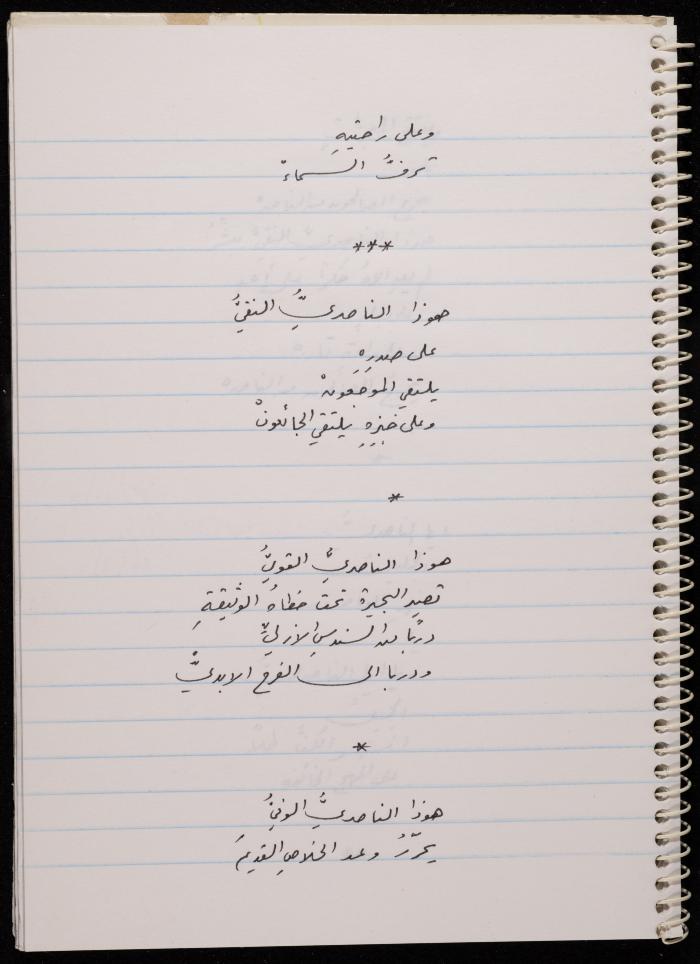 وعلى راحتيهِ
ترفُّ السماءْ
***
هوذا الناصريُّ النقيُّ
على صدرِهِ
يلتقي الموجَعونْ
وعلى خبزِهِ يلتقي الجائعونْ
*
هوذا الناصريُّ القويُّ
تصير البحيرة تحت خطاهُ الوثيقةِ
دربًا من السندسِ الازليِّ
ودربا الى الفرح الابديِّ
*
هوذا الناصريُّ الوفيُّ
يحرّرُ وعد الخلاصِ القديمَ